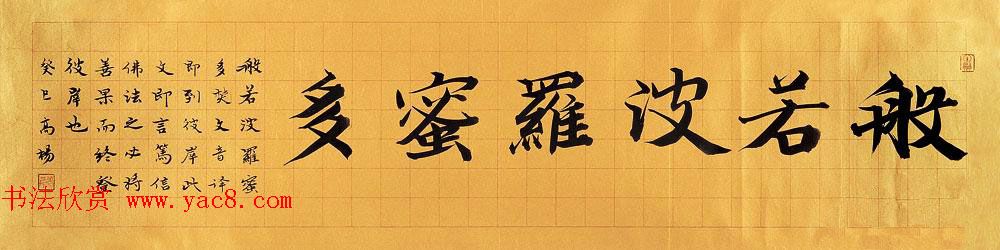 般若波羅蜜多
般若波羅蜜
多梵文音译
即到彼岸此
文即言篤信
佛法之必将
善果而终登
彼岸也
癸巳高楊
书法欣赏 www.yac8.com